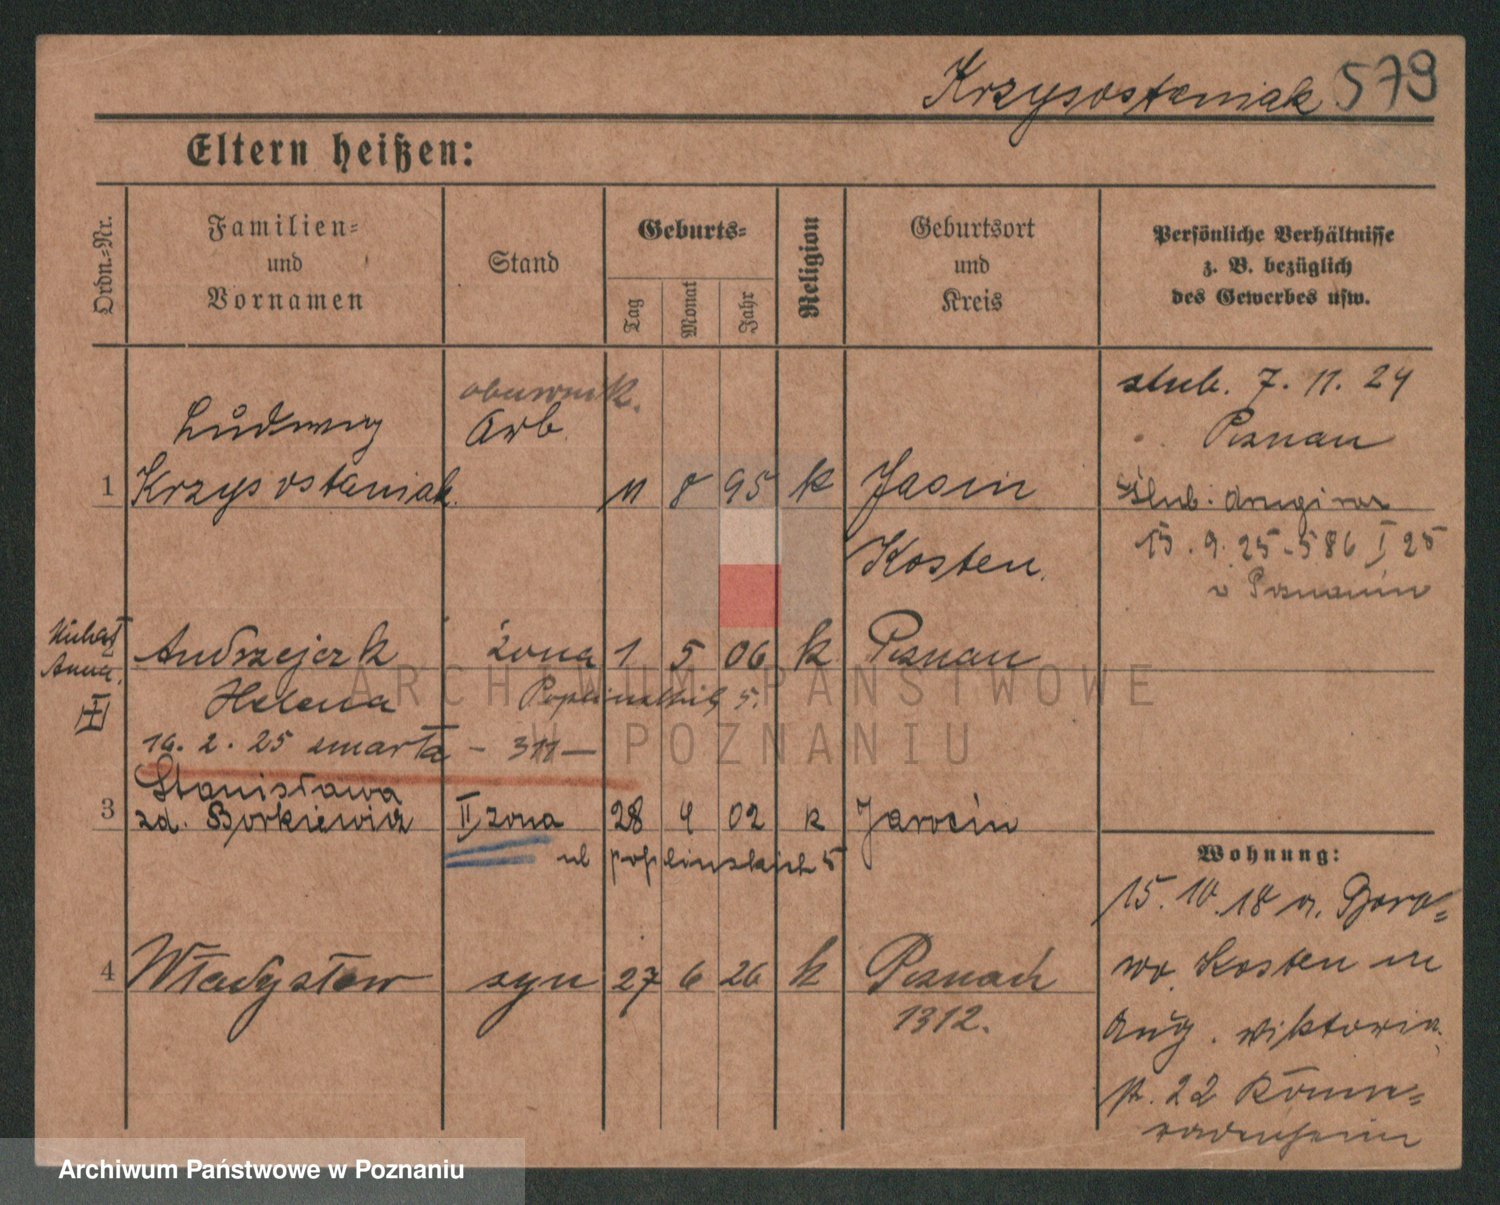 Krzysostaniak 579
Eltern heißen:
Ordn.=Nr.
Familien=
und
Vornamen
Stand
Geburts=
Tag
Monat
Jahr
Religion
Geburtsort
und
Kreis
Persönliche Verhältnisse
z. B. bezüglich
des Gewerbes usw.
Ludwig
Arb.
1 Krzysostaniak. 11 8 95 k Jasin
Kosten.
ślub. 7. 11. 24
Poznan
Ślub: drugi raz
15. 9. 25 - 586 I 25
w Poznaniu
Anna
Andrzejczk żona 1 5 06 k Poznan
Helena
16. 2. 25 umarła - 311 -
Stanisława
3 zd. Borkiewicz II żona 28 4 02 k Jarocin
ul poplinskich 5
4 Władysław syn 27 6 26 k Poznań
1312.
Wohnung:
15. 10. 18 a. Boro=
wo. Kosten in
Aug. Wiktoria
st. 22
ARCHIWUM PAŃSTWOWE
W POZNANIU
Archiwum Państwowe w Poznaniu